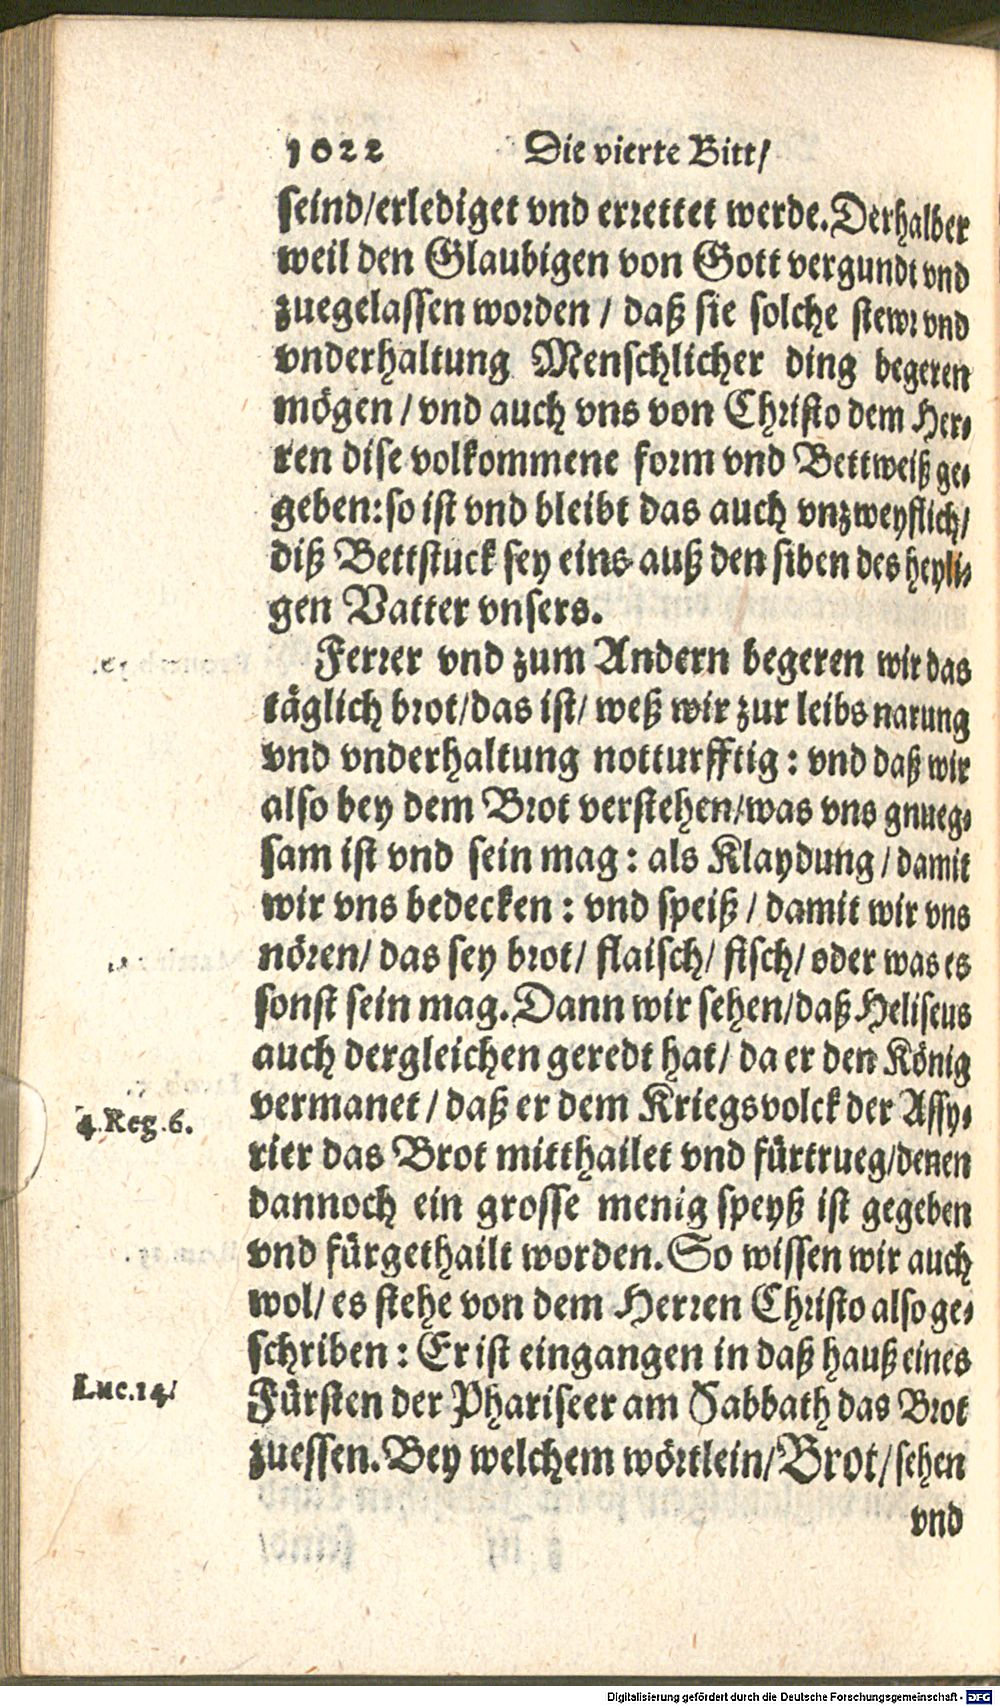 1022 Die vierte Bitt/
seind/erlediget vnd errettet werde. Derhalber
weil den Glaubigen von Gott vergundt vnd
zuegelassen worden / daß sie solche stewr vnd
vnderhaltung Menschlicher ding begeren
mögen / vnd auch vns von Christo dem Her-
ren dise volkommene form vnd Bettweiß ge-
geben: so ist vnd bleibt das auch vnzweyflich/
diß Bettstuck sey eins auß den siben des heyli-
gen Vatter vnsers.
Ferrer vnd zum Andern begeren wir das
täglich brot/das ist/ weß wir zur leibs narung
vnd vnderhaltung notturfftig : vnd daß wir
also bey dem Brot verstehen/was vns gnueg-
sam ist vnd sein mag : als Klaydung / damit
wir vns bedecken : vnd speiß / damit wir vns
nören/ das sey brot/ flaisch/ fisch/ oder was es
sonst sein mag. Dann wir sehen/daß Heliseus
auch dergleichen geredt hat/ da er den König
vermanet / daß er dem Kriegsvolck der Assy-
4.Reg.6.
rier das Brot mitthailet vnd fürtrueg/denen
dannoch ein grosse menig speyß ist gegeben
vnd fürgethailt worden. So wissen wir auch
wol/ es stehe von dem Herren Christo also ge-
schriben : Er ist eingangen in daß hauß eines
Luc.14/
Fürsten der Phariseer am Sabbath das Brot
zuessen. Bey welchem wörtlein/Brot/sehen
vnd
Digitalisierung gefördert durch die Deutsche Forschungsgemeinschaft - DFG